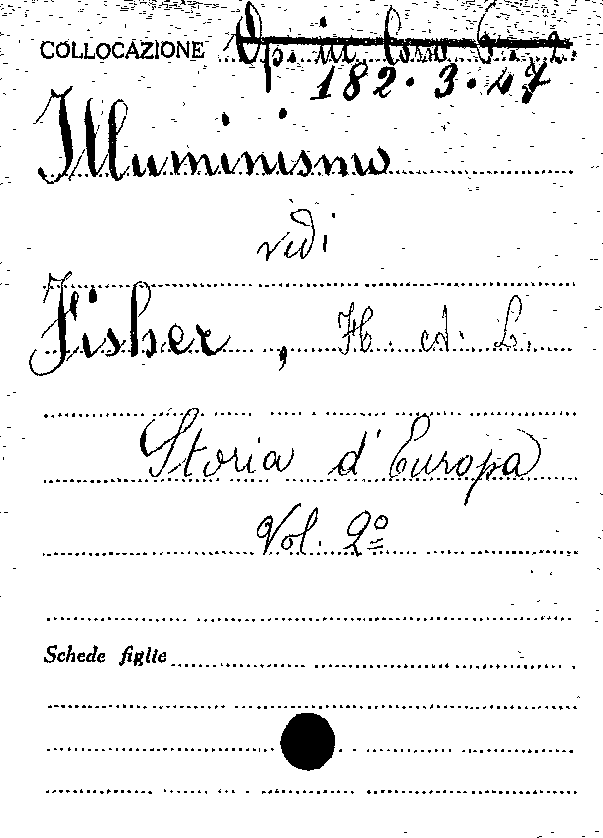 COLLOCAZIONE Op. in
182.3.47
Illuminismo
vedi
Fisher, H. A. L.
Storia d'Europa
Vol. 2º
Schede figlie